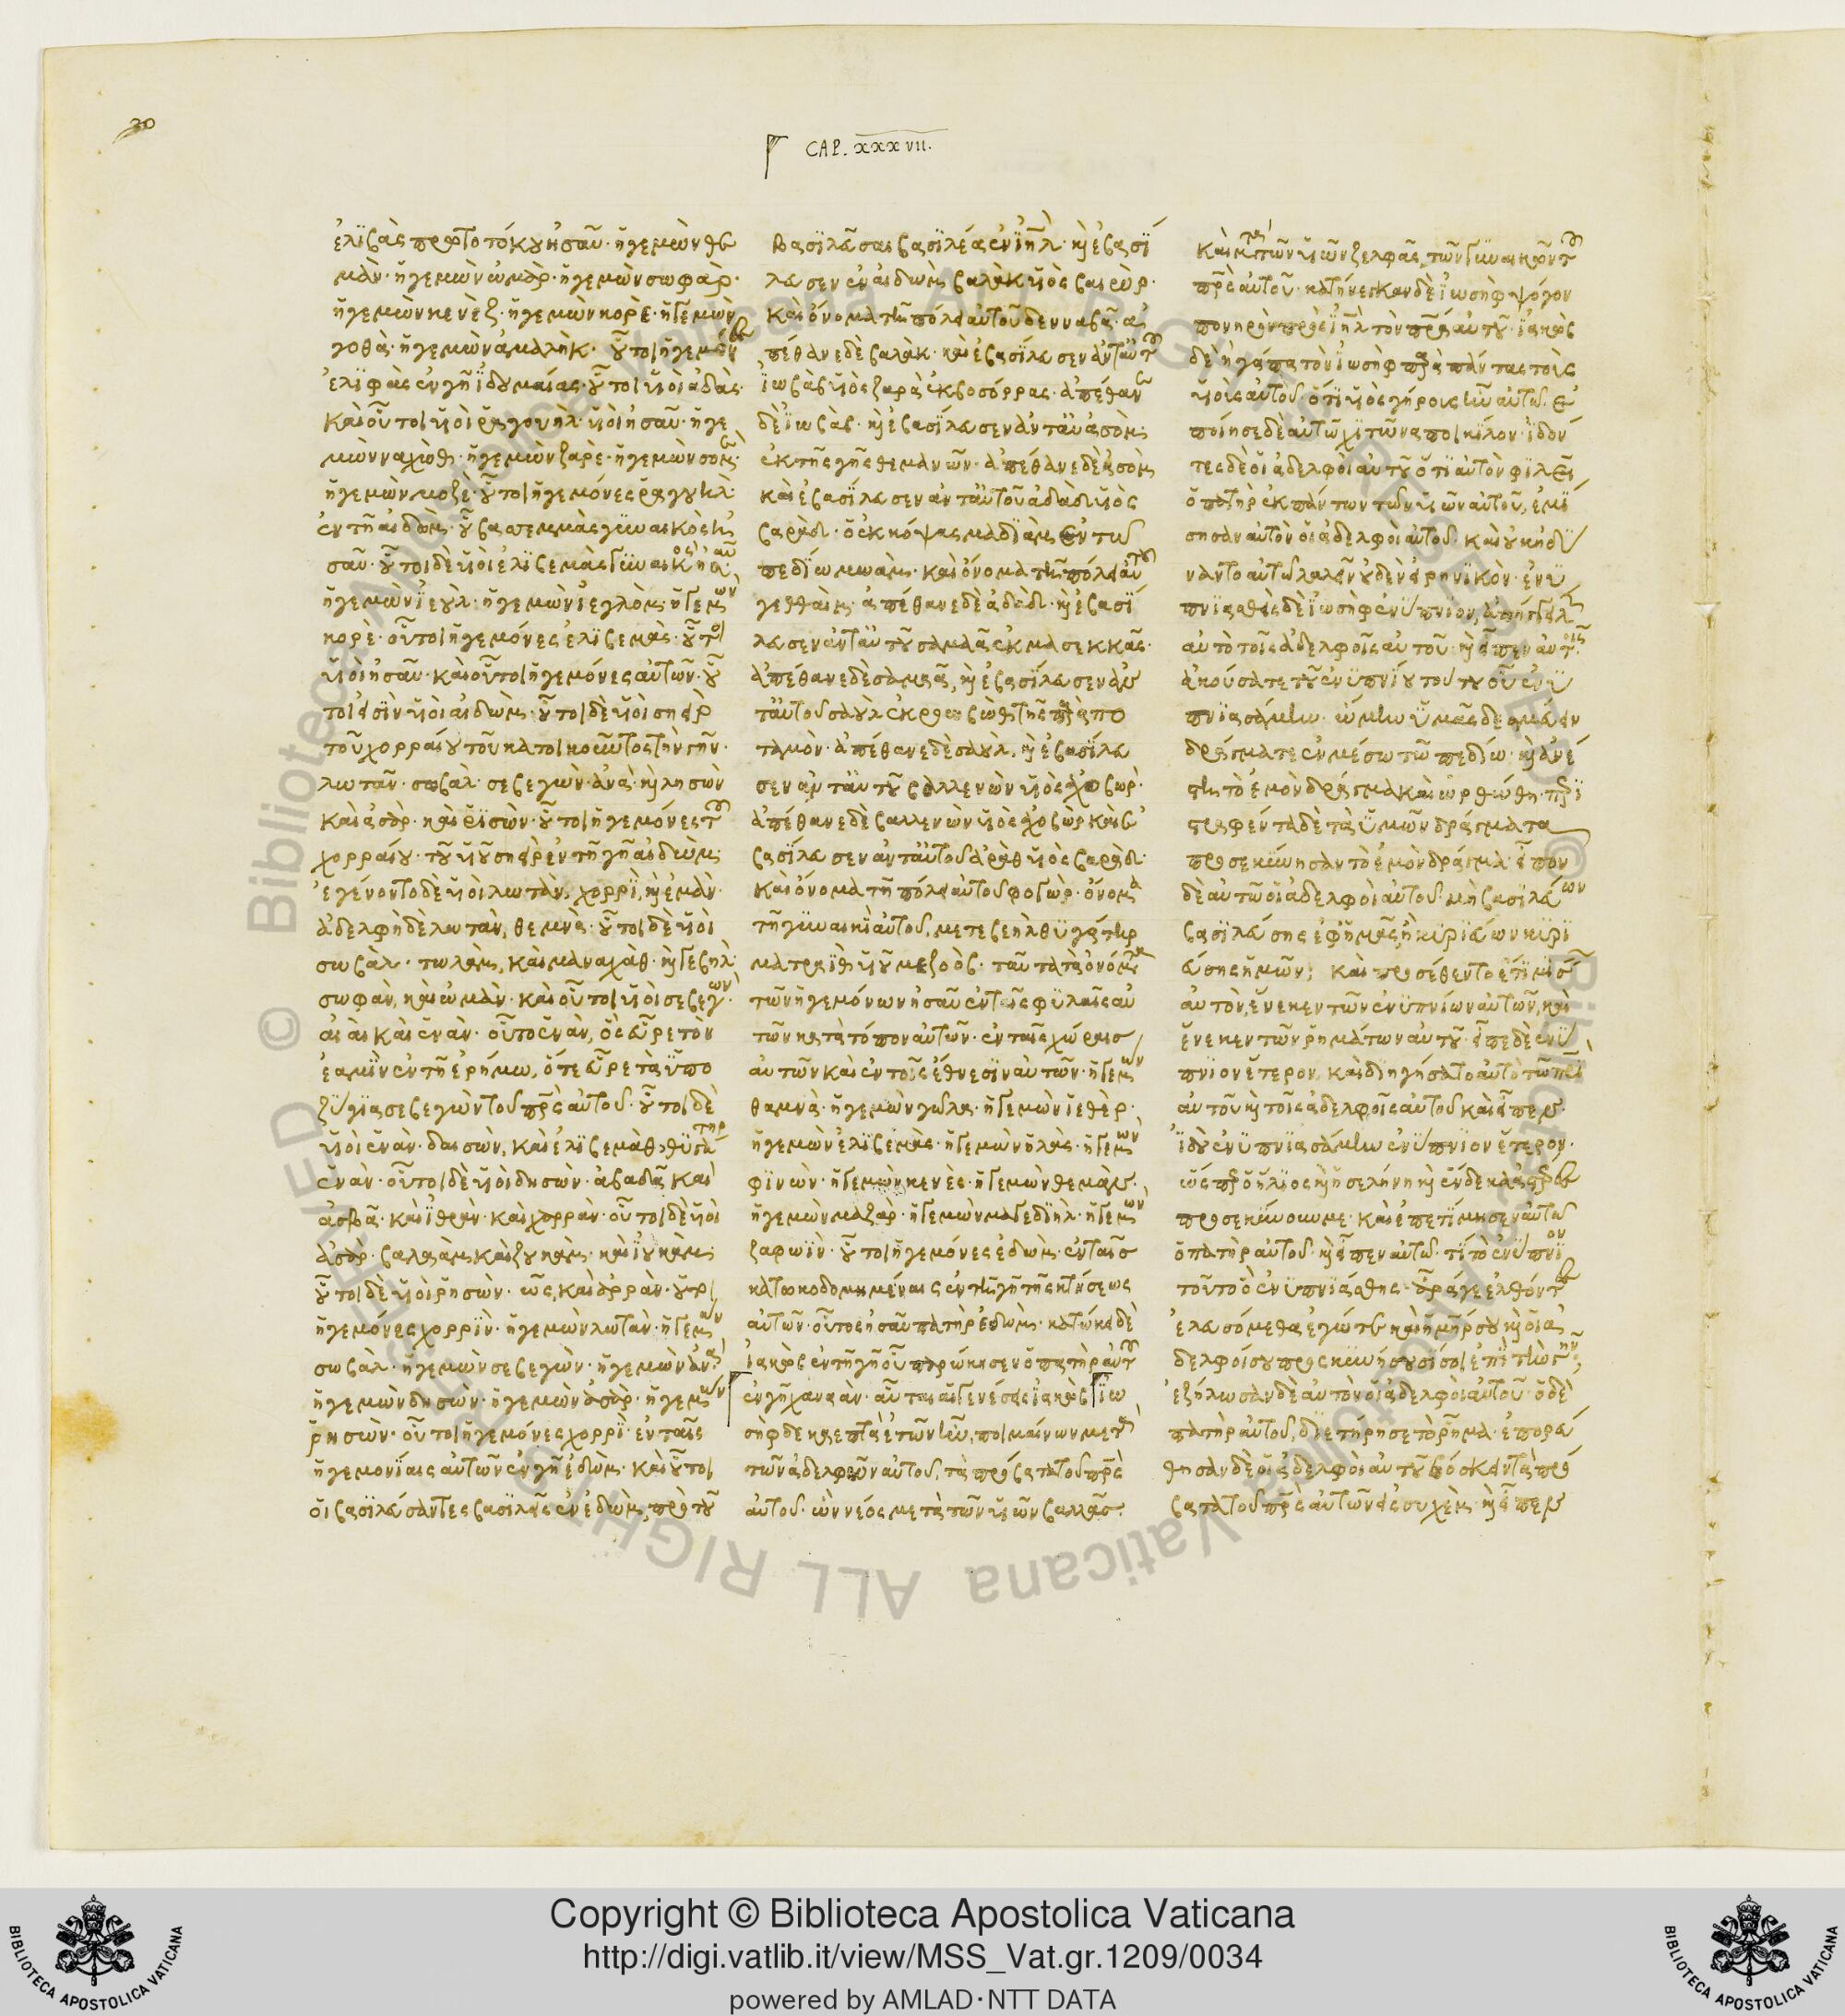 30
CAP. XXXVII.
ἐλιβὰς πρωτοτόκου ἠσαῦ· ἡγεμὼν θαι
μὰν· ἡγεμὼν ὠμὰρ· ἡγεμὼν σωφὰρ·
ἡγεμὼν κενὲζ· ἡγεμὼν κορὲ· ἡγεμὼν
γοθὰ· ἡγεμὼν ἀμαλὴκ· οὗτοι ἡγεμόνες
ἐλιφὰς ἐν γῇ ἰδουμαίας· οὗτοι υἱοὶ ἀδὰς·
Καὶ οὗτοι υἱοὶ ῥαγουὴλ υἱοὶ ἠσαῦ· ἡγε
μὼν ναχὼθ· ἡγεμὼν ζαρὲ· ἡγεμὼν σομὲ·
ἡγεμὼν μοζὲ· οὗτοι ἡγεμόνες ῥαγουὴλ
ἐν γῇ ἐδὼμ· οὗ βασεμμὰς γυναικὸς ἠ
σαῦ· οὗτοι δὲ υἱοὶ ἐλιβεμὰς γυναικὸς ἠσαῦ
ἡγεμὼν ἰεοὺλ· ἡγεμὼν ἰεγλὸμ· ἡγεμὼν
κορὲ· οὗτοι ἡγεμόνες ἐλιβεμὰς· οὗτοι
υἱοὶ ἠσαῦ· καὶ οὗτοι ἡγεμόνες αὐτῶν· οὗ
τοί εἰσιν υἱοὶ αἰδὼμ· οὗτοι δὲ υἱοὶ σηεὶρ
τοῦ χορραίου τοῦ κατοικοῦντος τὴν γῆν·
λωτὰν· σωβὰλ· σεβεγὼν· ἀνὰ· καὶ δησὼν
καὶ ἀσὰρ· καὶ ῥισὼν· οὗτοι ἡγεμόνες τοῦ
χορραίου· τοῦ υἱοῦ σηεὶρ ἐν τῇ γῇ αἰδὼμ·
ἐγένοντο δὲ υἱοὶ λωτὰν, χορρὶ, καὶ ἐμὰν·
ἀδελφὴ δὲ λωτὰν, θεμνὰ· οὗτοι δὲ υἱοὶ
σωβὰλ· γωλὰμ, καὶ μαναχὰθ· καὶ γεβὴλ·
σωφὰν, καὶ ὠμὰν· καὶ οὗτοι υἱοὶ σεβεγών·
αἰαὶ καὶ ὠνὰν· οὗτος ὠνὰν, ὃς εὗρε τὸν
ἐαμὶν ἐν τῇ ἐρήμῳ, ὅτε εὗρε τὰ ὑπο
ζύγια σεβεγὼν τοῦ πρς αὐτοῦ· οὗτοι δὲ
υἱοὶ ὠνὰν· δαισὼν, καὶ ἐλιβεμὰ θυγάτηρ
ὠνὰν· οὗτοι δὲ υἱοὶ δησὼν· ἀβαδᾶ καὶ
ἀσβᾶ· καὶ ἰθρὰν· καὶ χορρὰν· οὗτοι δὲ υἱοὶ
ἀσὰρ· βαλαὰμ καὶ ζουκὰμ· καὶ ἰουκὰμ
οὗτοι δὲ υἱοὶ ῥησὼν· ὣς, καὶ ἀρρὰν· οὗτοι
ἡγεμόνες χορρὶν· ἡγεμὼν λωτὰν· ἡγεμὼν
σωβὰλ· ἡγεμὼν σεβεγὼν· ἡγεμὼν ἀνὰ
ἡγεμὼν δησὼν· ἡγεμὼν ἀσὰρ· ἡγεμὼν
ῥησὼν· οὗτοι ἡγεμόνες χορρὶ· ἐν ταῖς
ἡγεμονίαις αὐτῶν ἐν γῇ ἐδὼμ· καὶ οὗτοι
οἱ βασιλεύσαντες βασιλεῖς ἐν ἐδὼμ, πρὸ τοῦ
βασιλεῦσαι βασιλέα ἐν ἰηλ· καὶ ἐβασί
λευσεν ἐν αἰδὼμ βαλὰκ υἱὸς βαιὼρ·
Καὶ ὄνομα τῇ πόλει αὐτοῦ δενναβᾶ· ἀ
πέθανε δὲ βαλὰκ· καὶ ἐβασίλευσεν ἀντ αὐτοῦ
ἰωβὰβ υἱὸς ζαρὰ ἐκ βοσόρρας· ἀπέθανεν
δὲ ἰωβὰβ· καὶ ἐβασίλευσεν ἀντ αὐ ἀσὸμ
ἐκ τῆς γῆς θεμανῶν· ἀπέθανε δὲ ἀσὸμ
καὶ ἐβασίλευσεν ἀντ αὐτοῦ ἀδὰδ υἱὸς
βαρὰδ· ὁ ἐκκόψας μαδιὰμ ἐν τῷ
πεδίῳ μωάβ· καὶ ὄνομα τῇ πόλει αὐτοῦ
γεθθαὶμ· ἀπέθανε δὲ ἀδὰδ· καὶ ἐβασί
λευσεν ἀντ αὐτοῦ σαμαᾶ ἐκ μασεκκᾶς·
ἀπέθανε δὲ σαμαᾶ, καὶ ἐβασίλευσεν ἀν
τ αὐτοῦ σαοὺλ ἐκ ροωβὼθ τῆς παρὰ πο
ταμὸν· ἀπέθανε δὲ σαοὺλ, καὶ ἐβασίλευ
σεν ἀντ αὐτοῦ βαλλενὼν υἱὸς ἀχοβὼρ·
ἀπέθανε δὲ βαλλενὼν υἱὸς ἀχοβὼρ καὶ ἐ
βασίλευσεν ἀντ αὐτοῦ ἀρὰθ υἱὸς βαρὰδ·
Καὶ ὄνομα τῇ πόλει αὐτοῦ φογὼρ· ὄνομα
τῇ γυναικὶ αὐτοῦ, μετεβεὴλ θυγάτηρ
ματραὶθ υἱοῦ μεζοὸβ· ταῦτα τὰ ὀνόματα
τῶν ἡγεμόνων ἠσαῦ ἐν ταῖς φυλαῖς αὐ
τῶν κατὰ τόπον αὐτῶν· ἐν ταῖς χώραις
αὐτῶν καὶ ἐν τοῖς ἔθνεσιν αὐτῶν· ἡγεμὼν
θαμνὰ· ἡγεμὼν γωλα· ἡγεμὼν ἰεθὲρ·
ἡγεμὼν ἐλιβεμὰς· ἡγεμὼν ἠλὰς· ἡγεμὼν
φινὼν· ἡγεμὼν κενὲς· ἡγεμὼν θεμὰν·
ἡγεμὼν μαζὰρ· ἡγεμὼν μαγεδιὴλ· ἡγεμὼν
ζαφωὶν· οὗτοι ἡγεμόνες ἐδὼμ· ἐν ταῖς
κατῳκοδομημέναις ἐν τῇ γῇ τῆς κτήσεως
αὐτῶν· οὗτος ἠσαῦ πατὴρ ἐδὼμ· κατῴκει δὲ
ἰακὼβ ἐν τῇ γῇ οὗ παρῴκησεν ὁ πατὴρ αὐτοῦ
ἐν γῇ χαναὰν· αὗται αἱ γενέσεις ἰακὼβ ἰω
σὴφ δεκαεπτὰ ἐτῶν ἦν, ποιμαίνων μετὰ
τῶν ἀδελφῶν αὐτοῦ, τὰ πρόβατα τοῦ πρς
αὐτοῦ· ὢν νέος μετὰ τῶν υἱῶν βαλλᾶς·
καὶ μετὰ τῶν υἱῶν ζελφᾶς, τῶν γυναικῶν τοῦ
πρς αὐτοῦ· κατήνεγκαν δὲ ἰωσὴφ ψόγον
πονηρὸν πρὸς ἰηλ τὸν πρα αὐτοῦ· ἰακὼβ
δὲ ἠγάπα τὸν ἰωσὴφ παρὰ πάντας τοὺς
υἱοὺς αὐτοῦ· ὅτι υἱὸς γήρους ἦν αὐτῷ· ἐ
ποίησε δὲ αὐτῷ χιτῶνα ποικίλον· ἰδόν
τες δὲ οἱ ἀδελφοὶ αὐτοῦ ὅτι αὐτὸν φιλεῖ
ὁ πατὴρ ἐκ πάντων τῶν υἱῶν αὐτοῦ, ἐμί
σησαν αὐτὸν οἱ ἀδελφοὶ αὐτοῦ· καὶ οὐκ ἠδύ
ναντο αὐτῷ λαλεῖν οὐδὲν εἰρηνικὸν· ἐνυ
πνιασθεὶς δὲ ἰωσὴφ ἐνύπνιον, ἀπήγγειλεν
αὐτὸ τοῖς ἀδελφοῖς αὐτοῦ· καὶ εἶπεν αὐτοῖς·
ἀκούσατε τοῦ ἐνυπνίου τούτου οὗ ἐνυ
πνιασάμην· ᾤμην ὑμᾶς δεσμεύειν
δράγματα ἐν μέσῳ τῷ πεδίῳ· καὶ ἀνέ
στη τὸ ἐμὸν δράγμα καὶ ὠρθώθη· περι
στραφέντα δὲ τὰ ὑμῶν δράγματα
προσεκύνησαν τὸ ἐμὸν δράγμα· εἶπον
δὲ αὐτῷ οἱ ἀδελφοὶ αὐτοῦ· μὴ βασιλεύων
βασιλεύσῃς ἐφ ἡμᾶς, ἢ κυριεύων κυρι
εύσῃς ἡμῶν; καὶ προσέθεντο ἔτι μισεῖν
αὐτὸν, ἕνεκεν τῶν ἐνυπνίων αὐτῶν, καὶ
ἕνεκεν τῶν ῥημάτων αὐτοῦ· εἶπε δὲ ἐνύ
πνιον ἕτερον, καὶ διηγήσατο αὐτὸ τῷ πρὶ
αὐτοῦ καὶ τοῖς ἀδελφοῖς αὐτοῦ καὶ εἶπεν·
ἰδοὺ ἐνυπνιασάμην ἐνύπνιον ἕτερον·
ὥσπερ ὁ ἥλιος καὶ ἡ σελήνη καὶ ἕνδεκα ἀστέρες
προσεκύνουν με· καὶ ἐπετίμησεν αὐτῷ
ὁ πατὴρ αὐτοῦ· καὶ εἶπεν αὐτῷ· τί τὸ ἐνύπνιον
τοῦτο ὃ ἐνυπνιάσθης· ἆρά γε ἐλθόντες
ἐλευσόμεθα ἐγώ τε καὶ ἡ μήτηρ σου καὶ οἱ ἀ
δελφοί σου προσκυνῆσαί σοι ἐπὶ τὴν γῆν;
ἐζήλωσαν δὲ αὐτὸν οἱ ἀδελφοὶ αὐτοῦ· ὁ δὲ
πατὴρ αὐτοῦ, διετήρησε τὸ ῥῆμα· ἐπορεύ
θησαν δὲ οἱ ἀδελφοὶ αὐτοῦ βόσκειν τὰ πρό
βατα τοῦ πρς αὐτῶν εἰς συχὲμ· καὶ εἶπεν
Copyright © Biblioteca Apostolica Vaticana
http://digi.vatlib.it/view/MSS_Vat.gr.1209/0034
powered by AMLAD·NTT DATA
BIBLIOTECA APOSTOLICA VATICANA
BIBLIOTECA APOSTOLICA VATICANA
© Biblioteca Apostolica Vaticana ALL RIGHTS RESERVED